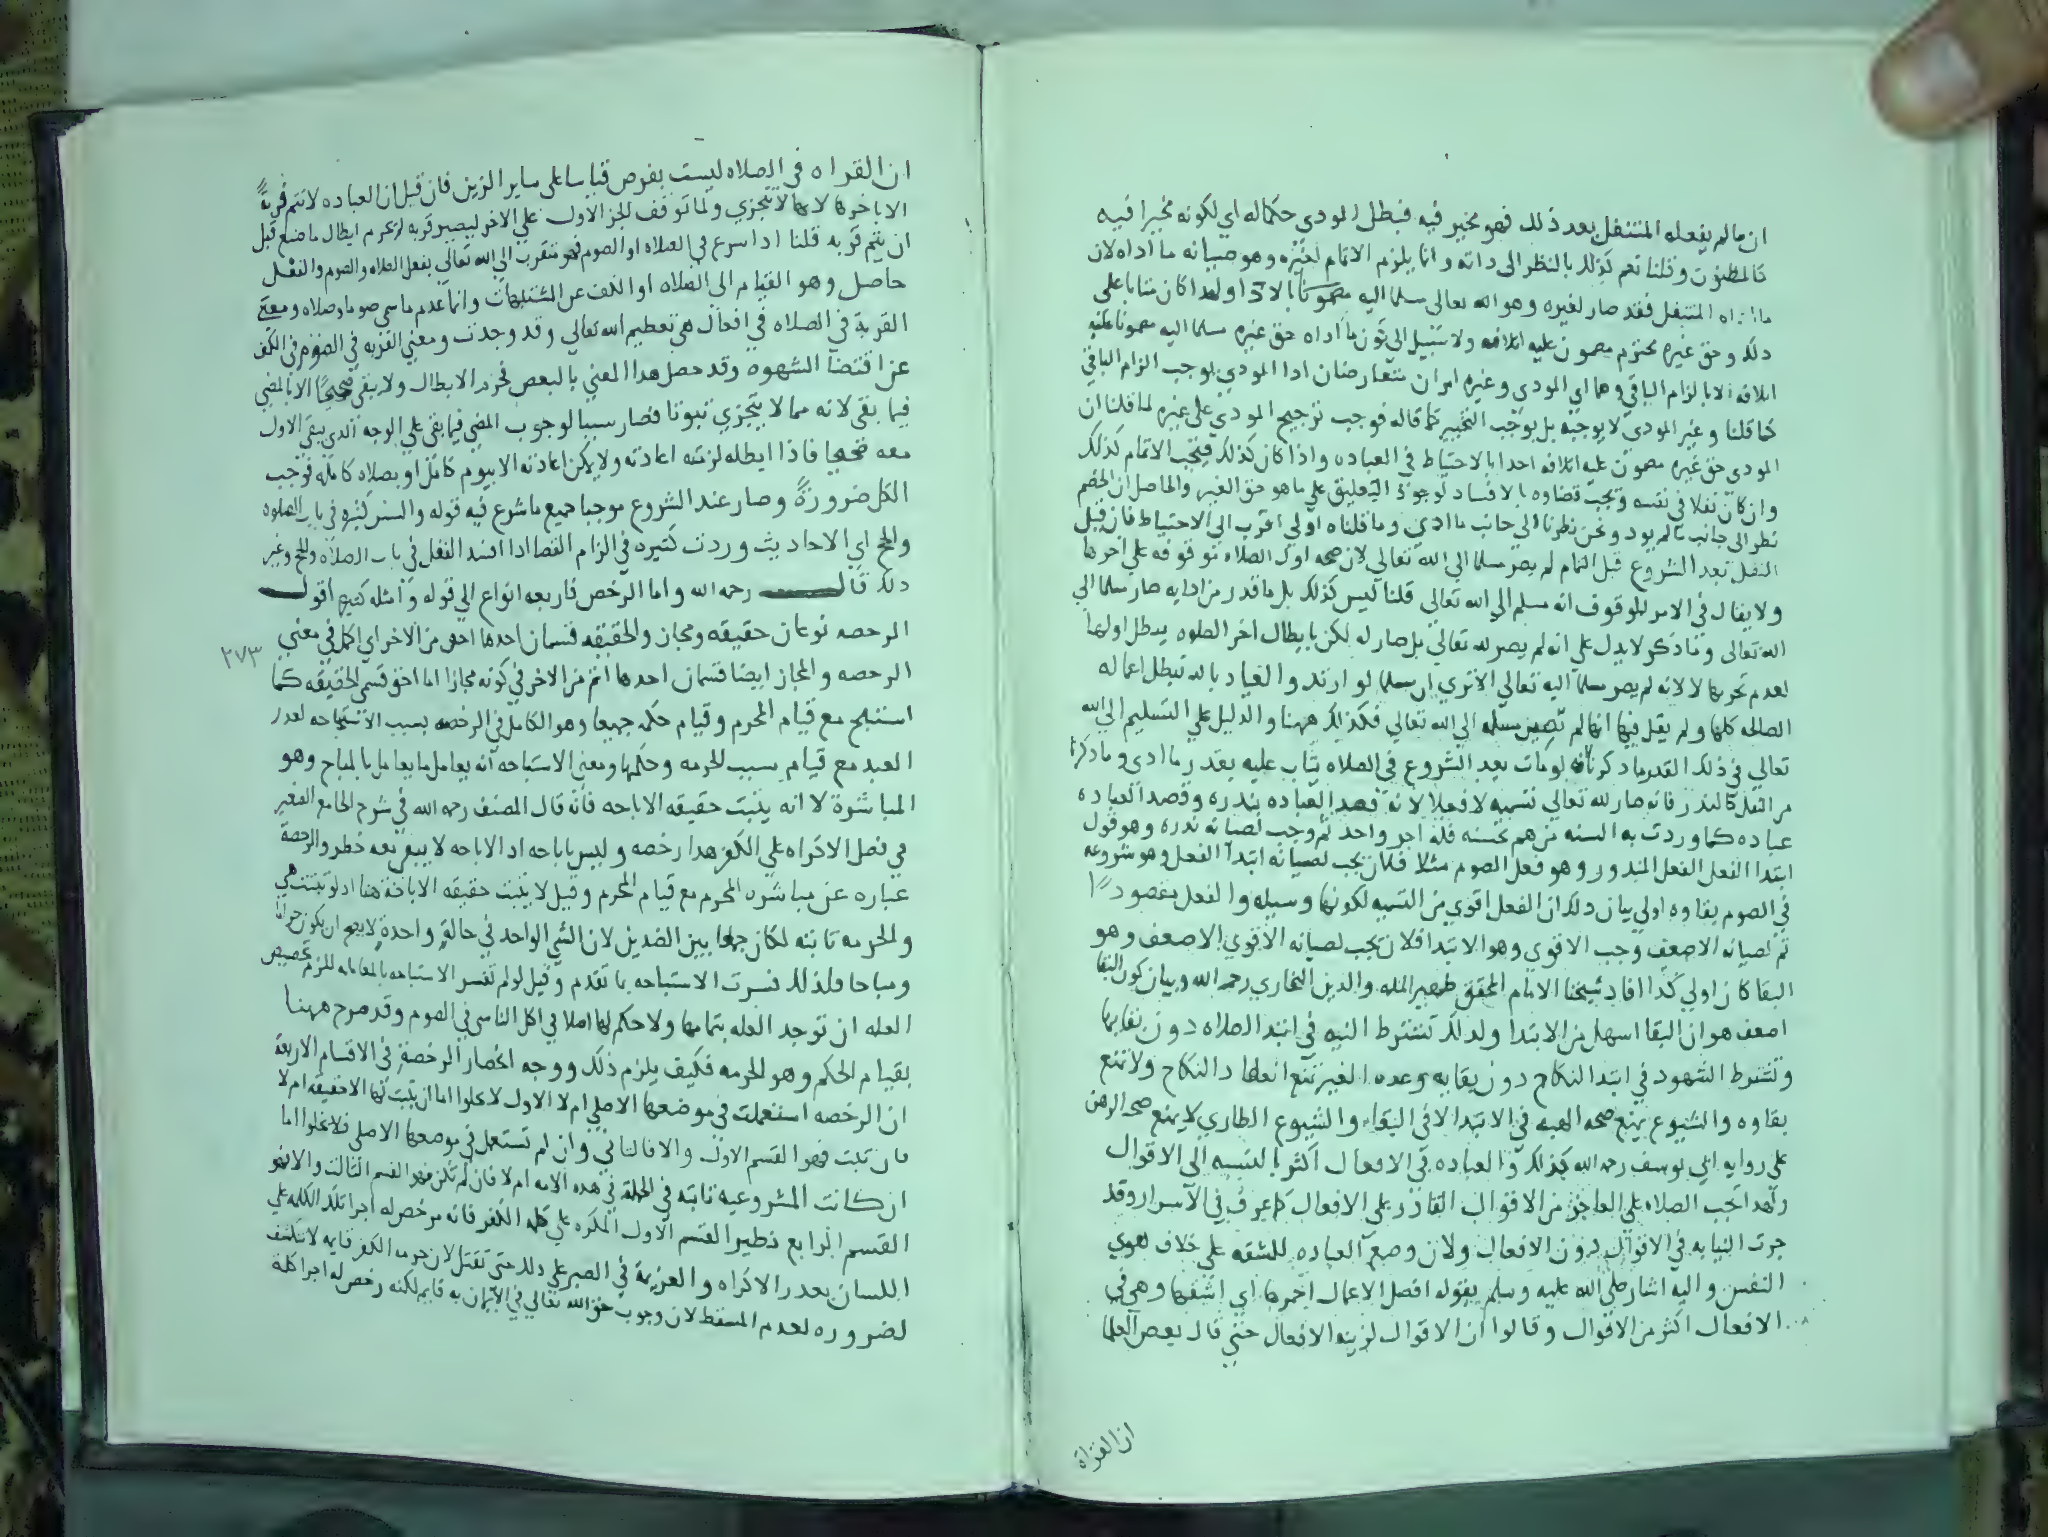 ان ما لم يفعله المتنفل بعد ذلك فهو مخير فيه فبطل المودي حكما له اي لكونه مخيرا فيه
كالمظنون وقلنا نعم كذلك بالنظر الى ذاته وانما يلزم الاتمام لغيره وهو صيانه ما اداه لان
ما اداه المتنفل فقد صار لغيره وهو الله تعالى مسلما اليه ولهذا كان مثابا على
ذلك وحق غيره محترم مضمون عليه اتلافه ولا سبيل الى كون ما اداه حق غيره مسلما اليه مضمونا عليه
اتلافه الا بالزام الباقي وهما اي المودى وغيره امران متعارضان اذا المودي يوجب الزام الباقي
كما قلنا وغير المودى لا يوجبه بل يوجب التخيير كما قاله فوجب ترجيح المودي على غيره لما قلنا ان
المودى حق غيره مضمون عليه اتلافه اخذا بالاحتياط في العباده واذا كان كذلك فيجب الاتمام كذلك
وان كان نفلا في نفسه ويجب قضاوه بالافساد لوجود التعليق على ما هو حق الغير والحاصل ان الخصم
نظر الى جانب ما لم يود ونحن نظرنا الى جانب ما ادي وما قلناه اولي اقرب الي الاحتياط فان قيل
النفل بعد الشروع قبل التمام لم يصر مسلما الى الله تعالى لان صحه اول الصلاه موقوفه علي اخرها
ولا يقال في الامر الموقوف انه مسلم الي الله تعالي قلنا ليس كذلك بل ما قدر من ادايه صار مسلما الي
الله تعالى وما ذكر لا يدل على انه لم يصر لله تعالي بل صار له لكن بابطال اخر الصلوه يبطل اولها
لعدم تجزيها لا لانه لم يصر مسلما اليه تعالي الا تري ان مسلما لو ارتد والعياذ بالله تبطل اعماله
الصالحه كلها ولم يقل فيها انها لم تصر مسلمه الي الله تعالي فكذلك ههنا والدليل علي التسليم الي الله
تعالي في ذلك القدر ما ذكرنا انه لو مات بعد الشروع في الصلاه يثاب عليه بقدر ما ادى وما ذكرنا
من النفل كالنذر فانه صار لله تعالي تسميه لا فعلا لانه قصد العباده بنذره وقصد العباده
عباده كما وردت به السنه من هم بحسنه فله اجر واحد ثم وجب لصيانه نذره وهو قول
ابتدا الفعل الفعل المنذور وهو فعل الصوم مثلا فلان يجب لصيانه ابتدآ الفعل وهو شروعه
في الصوم بقاوه اولي بيان ذلك ان الفعل اقوي من التسميه لكونها وسيله والفعل مقصودًا
ثم لصيانه الاضعف وجب الاقوي وهو الابتدا فلان يجب لصيانه الاقوي الاضعف وهو
البقا كان اولي كذا افاد شيخنا الامام المحقق ظهير المله والدين البخاري رحمه الله وبيان كون البقا
اضعف هو ان البقا اسهل من الابتدا ولذلك تشترط النيه في ابتدا الصلاه دون بقايها
وتشترط الشهود في ابتدا النكاح دون بقايه وعده الغير تمنع انعقاد النكاح ولا تمنع
بقاوه والشيوع يمنع صحه الهبه في الابتدا لا في البقاء والشيوع الطاري لا يمنع صحه الرهن
على روايه ابي يوسف رحمه الله كذلك والعباده في الافعال اكثر بالنسبه الى الاقوال
ولهذا تجب الصلاه على العاجز من الاقوال القادر على الافعال كما عرف في الاسرار وقد
جرت النيابه في الاقوال دون الافعال ولان وضع العباده للمشقه على خلاف هوي
النفس واليه اشار صلى الله عليه وسلم بقوله افضل الاعمال احمزها اي اشقها وهي في
الافعال اكثر من الاقوال وقالوا ان الاقوال لزينه الافعال حتي قال بعض العلما
ان القراة
ان القراه في الصلاه ليست بفرض قياسا على ساير الزين فان قيل ان العباده لا تتم قربةً
الا باخرها لانها لا تتجزي ولما توقف الجز الاول علي الاخر ليصير قربه لم يحرم ابطال ما صنع قبل
ان يتم قربه قلنا اذا شرع في الصلاه او الصوم فهو متقرب الي الله تعالي بفعل الصلاه والصوم والفعل
حاصل وهو القيام الى الصلاه او الكف عن المشتهيات وانما عدم ما سمي صوما وصلاه ومعني
القربة في الصلاه في افعال هي تعظيم الله تعالي وقد وجدت ومعني القربه في الصوم في الكف
عن اقتضا الشهوه وقد حصل هذا المعني بالبعض فحرم الابطال ولا يبقى صحيحا الا بالمضي
فيما بقى لانه مما لا يتجزي ثبوتا فصار سببا لوجوب المضي فيما بقي علي الوجه الذي يبقى الاول
معه صحيحا فاذا ابطله لزمته اعادته ولا يمكن اعادته الا بيوم كامل او بصلاه كامله فوجب
الكل ضرورةً وصار عند الشروع موجبا جميع ما شرع فيه قوله والسنن كثيره في باب الصلوه
والحج اي الاحاديث وردت كثيره في الزام القضا اذا افسد الفعل في باب الصلاه والحج وغير
ذلك قال رحمه الله واما الرخص فاربعه انواع الي قوله وامثله كثيره اقول
الرخصه نوعان حقيقه ومجاز والحقيقه قسمان احدها احق من الاخر اي اكمل في معني
الرخصه والمجاز ايضا قسمان احدها اتم من الاخر في كونه مجازا اما احق قسمي الحقيقه كما
استبيح مع قيام المحرم وقيام حكمه جميعا وهو الكامل في الرخصه بسبب الاستباحه لعذر
العبد مع قيام سبب الحرمه وحكمها ومعني الاستباحه انه يعامل ما يعامل بالمباح وهو
المباشرة لا انه يثبت حقيقه الاباحه فانه قال المصنف رحمه الله في شرح الجامع الصغير
في فصل الاكراه علي الكفر هذا رخصه وليس باباحه اذ الاباحه لا يبقى معه حظر والرخصة
عباره عن مباشره المحرم مع قيام المحرم وقيل لا يثبت حقيقه الاباحه هنا اذ لو ثبتت هي
والحرمه ثابته لكان جمعا بين الضدين لان الشي الواحد في حالةٍ واحدةٍ لا يصح ان يكون حراما
ومباحا فلذلك فسرت الاستباحه بما تقدم وقيل لو لم تفسر الاستباحه بالمعامله للزم تخصيص
العله ان توجد العله بتمامها ولا حكم لها اصلا في اكل الناسي في الصوم وقد صرح ههنا
بقيام الحكم وهو الحرمه فكيف يلزم ذلك ووجه انحصار الرخصة في الاقسام الاربعة
ان الرخصه استعملت في موضعها الاصلي ام لا الاول لا يخلوا اما ان يثبت لها الاحقيقه ام لا
فان ثبت فهو القسم الاول والا فالثاني وان لم تستعمل في موضعها الاصلي فلا يخلوا اما
ان كانت المشروعيه ثابته في الجمله في هذه الامه ام لا فان لم تكن فهو القسم الثالث والا فهو
القسم الرابع نظير القسم الاول المكره علي كلمه الكفر فانه مرخص له اجرا تلك الكلمه علي
اللسان بعذر الاكراه والعزيمة في الصبر علي ذلك حتى تقتل لان حرمه الكفر قايمه لا تنكشف
لضروره لعدم المسقط لان وجوب حق الله تعالي في الايمان به قايم لكنه رخص له اجرا كلمة
٢٧٣